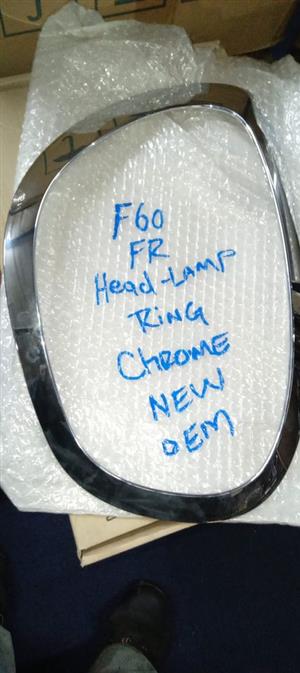 F60
FR
Head-LAMP
RING
CHROME
NEW
OEM